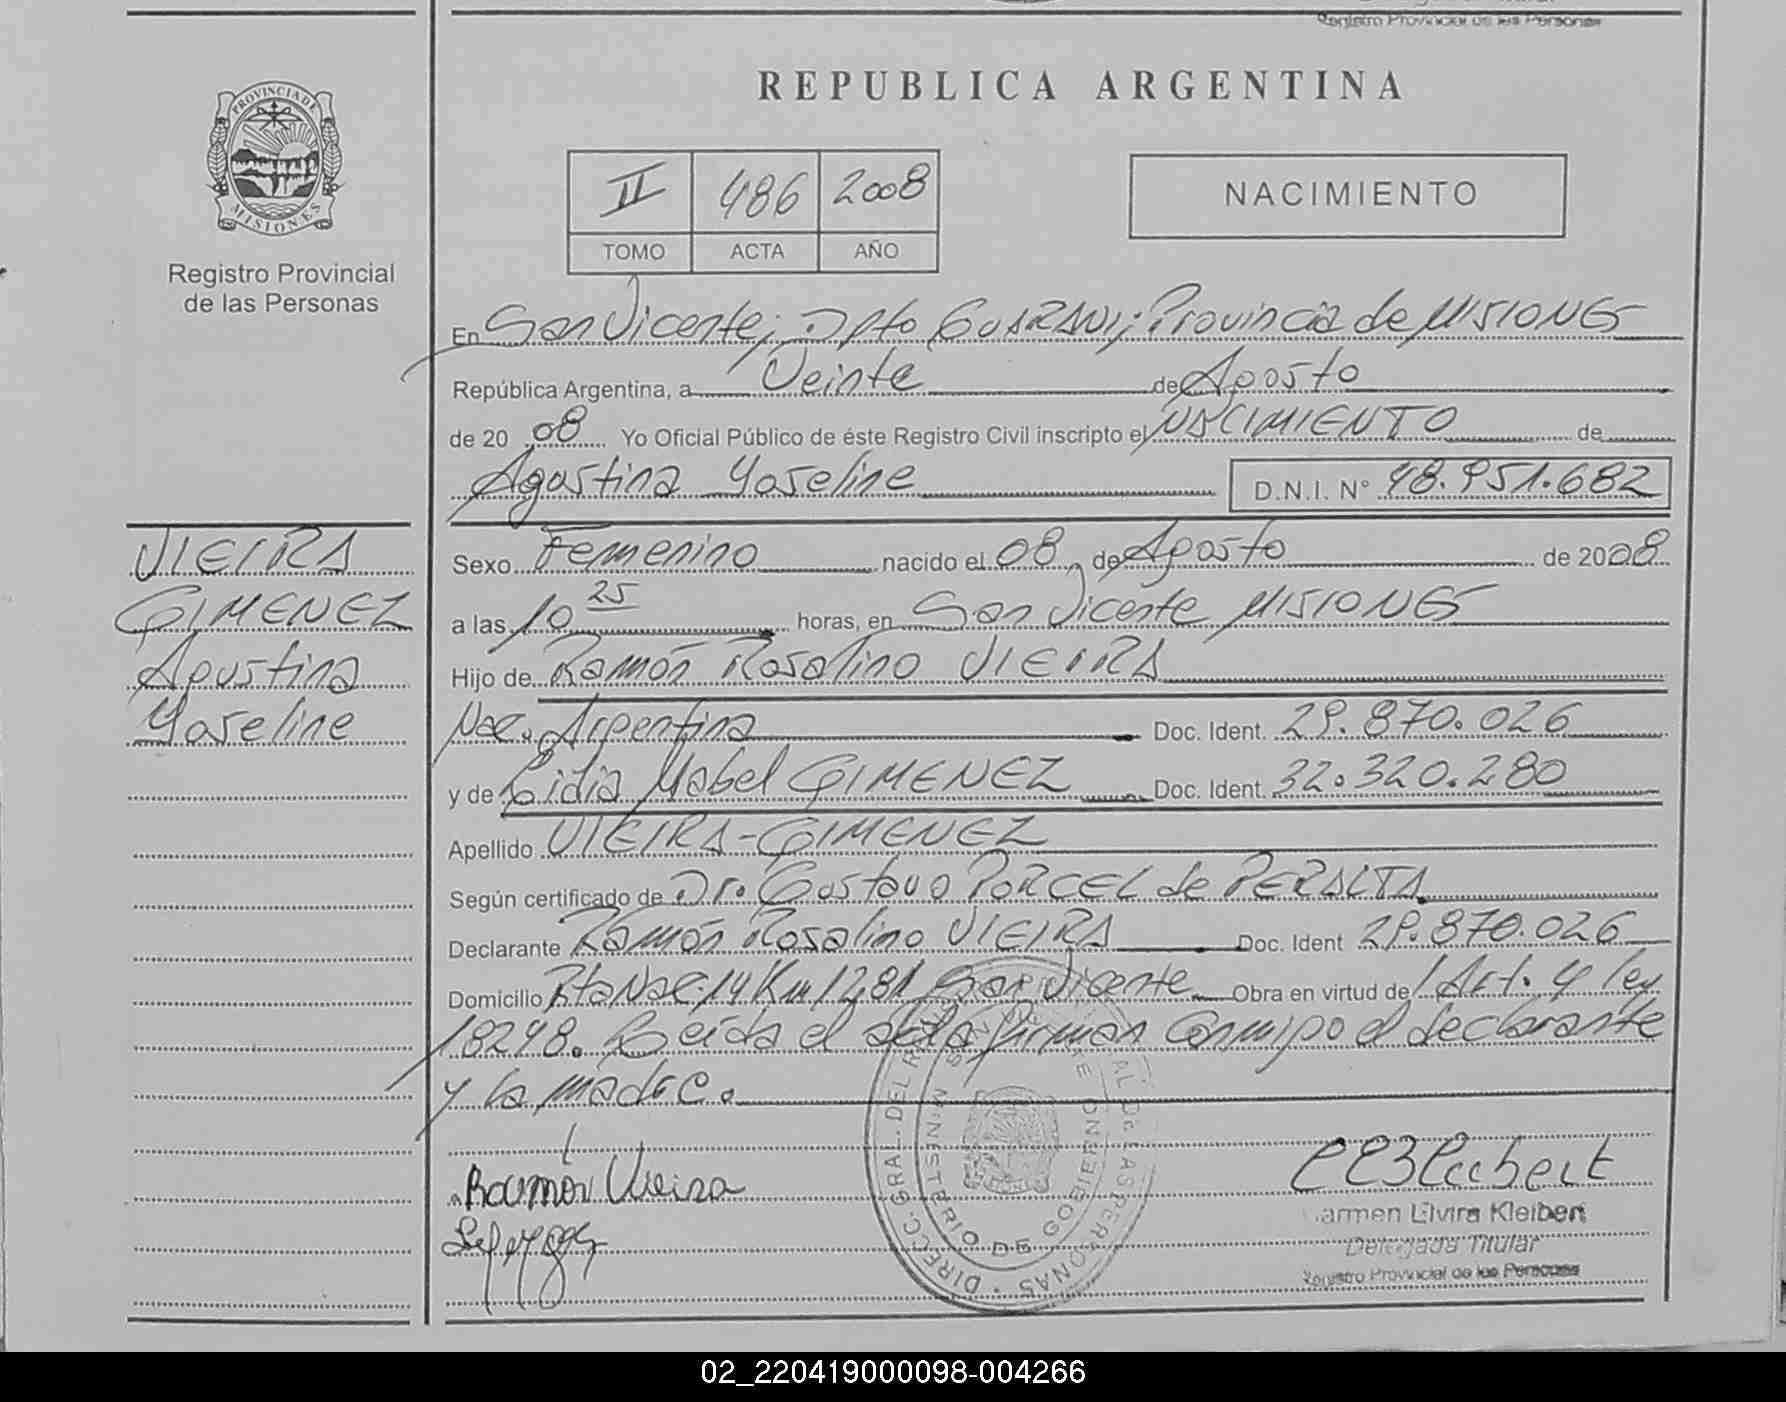 Registro Provincial de las Personas
REPUBLICA ARGENTINA
PROVINCIA DE
MISIONES
Registro Provincial
de las Personas
II 486 2008
TOMO ACTA AÑO
NACIMIENTO
En San Vicente; Dpto GUARANI; Provincia de MISIONES
República Argentina, a Veinte de Agosto
de 20 08 Yo Oficial Público de éste Registro Civil inscripto el NACIMIENTO de
Agustina Yaseline D.N.I. N° 48.951.682
VIEIRA
GIMENEZ
Agustina
Yaseline
Sexo Femenino nacido el 08 de Agosto de 2008
a las 10 25 horas, en San Vicente MISIONES
Hijo de Ramón Rosalino VIEIRA
Nac. Argentina Doc. Ident. 29.870.026
y de Lidia Mabel GIMENEZ Doc. Ident. 32.320.280
Apellido VIEIRA-GIMENEZ
Según certificado de Dr. Gustavo PORCEL de PERALTA
Declarante Ramón Rosalino VIEIRA Doc. Ident 29.870.026
Domicilio Rta Nac. 14 Km 1281 San Vicente Obra en virtud de Art. 4 ley
18248. Leída el acta firman conmigo el declarante
y la madre.
Ramón Vieira
DIRECC. GRAL. DEL DE LAS PERSONAS
MINISTERIO DE GOBIERNO
Carmen Elvira Kleibert
Delegada Titular
Registro Provincial de las Personas
02_220419000098-004266